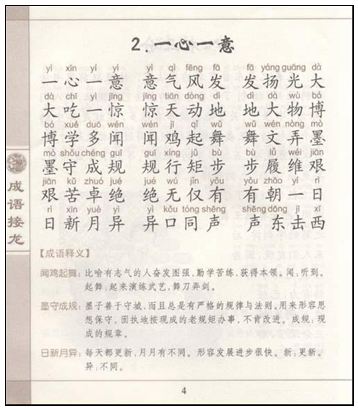 2.一心一意
yì xīn yí yì yì qì fēng fā fā yáng guāng dà
一心一意 意气风发 发扬光大
dà chī yì jīng jīng tiān dòng dì dì dà wù bó
大吃一惊 惊天动地 地大物博
bó xué duō wén wén jī qǐ wǔ wǔ wén nòng mò
博学多闻 闻鸡起舞 舞文弄墨
mò shǒu chéng guī guī xíng jǔ bù bù lǚ wéi jiān
墨守成规 规行矩步 步履维艰
jiān kǔ zhuó jué jué wú jǐn yǒu yǒu zhāo yí rì
艰苦卓绝 绝无仅有 有朝一日
rì xīn yuè yì yì kǒu tóng shēng shēng dōng jī xī
日新月异 异口同声 声东击西
成语接龙
【成语释义】
闻鸡起舞：比喻有志气的人奋发图强，勤学苦练，获得本领。闻：听到。
起舞：起来演练武艺，舞刀弄剑。
墨守成规：墨子善于守城，而且总是有严格的规律与法则。用来形容思
想保守，固执地按现成的老规矩办事，不肯改进。成规：现
成的规章。
日新月异：每天都更新，月月有不同。形容发展进步很快。新：更新。
异：不同。
4